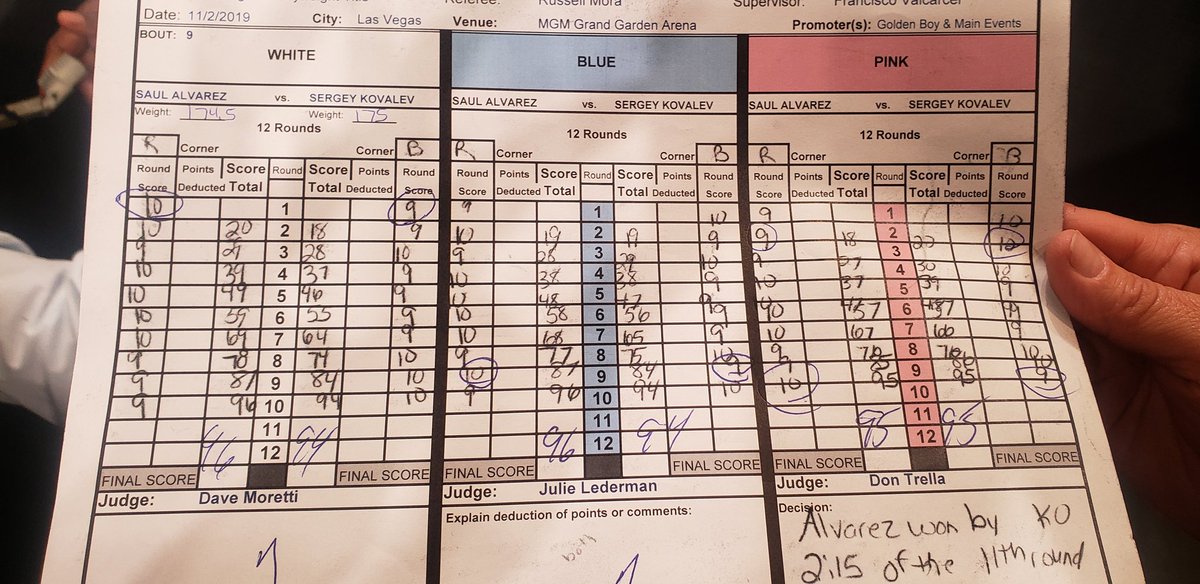 Referee: Russell Mora Supervisor: Francisco Valcarcel
Date: 11/2/2019 City: Las Vegas Venue: MGM Grand Garden Arena Promoter(s): Golden Boy & Main Events
BOUT: 9
WHITE BLUE PINK
SAUL ALVAREZ vs. SERGEY KOVALEV SAUL ALVAREZ vs. SERGEY KOVALEV SAUL ALVAREZ vs. SERGEY KOVALEV
Weight: 174.5 Weight: 175
12 Rounds 12 Rounds 12 Rounds
R Corner Corner B R Corner Corner B R Corner Corner B
Round Points Score Round Score Points Round Round Points Score Round Score Points Round Round Points Score Round Score Points Round
Score Deducted Total Total Deducted Score Score Deducted Total Total Deducted Score Score Deducted Total Total Deducted Score
10 1 9 9 1 10 9 1 10
10 20 2 18 9 10 19 2 19 9 9 18 2 20 10
9 29 3 28 10 9 28 3 29 10 9 27 3 30 10
10 39 4 37 9 10 38 4 38 9 10 37 4 39 9
10 49 5 46 9 10 48 5 47 9 5
10 59 6 55 9 10 58 6 56 9 6
10 69 7 64 9 10 68 7 65 9 10 67 7 66 9
9 78 8 74 10 9 77 8 75 10 9 76 8 76 10
9 87 9 84 10 10 87 9 84 9 9
9 96 10 94 10 9 96 10 94 10 10 95 10 95 9
11 11 11
96 12 94 96 12 94 95 12 95
FINAL SCORE FINAL SCORE FINAL SCORE FINAL SCORE FINAL SCORE FINAL SCORE
Judge: Dave Moretti Judge: Julie Lederman Judge: Don Trella
Explain deduction of points or comments: Decision:
Alvarez won by KO
2:15 of the 11th round